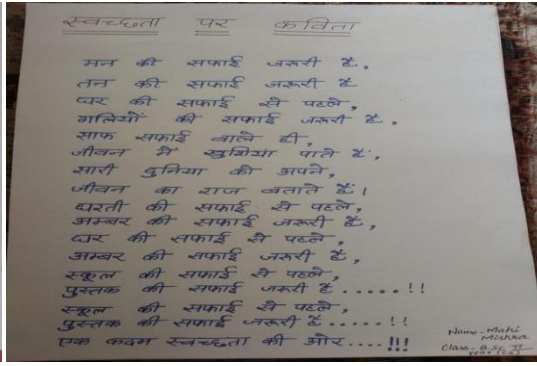 स्वच्छता पर कविता
मन की सफाई जरूरी है,
तन की सफाई जरूरी है
घर की सफाई से पहले,
गलियों की सफाई जरूरी है,
साफ सफाई वाले ही,
जीवन में खुशिया पाते हैं,
सारी दुनिया को अपने,
जीवन का राज बताते हैं।
धरती की सफाई से पहले,
अम्बर की सफाई जरूरी है,
घर की सफाई से पहले,
अम्बर की सफाई जरूरी है,
स्कूल की सफाई से पहले,
पुस्तक की सफाई जरूरी है.....!!
स्कूल की सफाई से पहले,
पुस्तक की सफाई जरूरी है.....!!
एक कदम स्वच्छता की ओर....!!!
Name - Mahi
Mishra
Class - B.Sc II
year (CS)